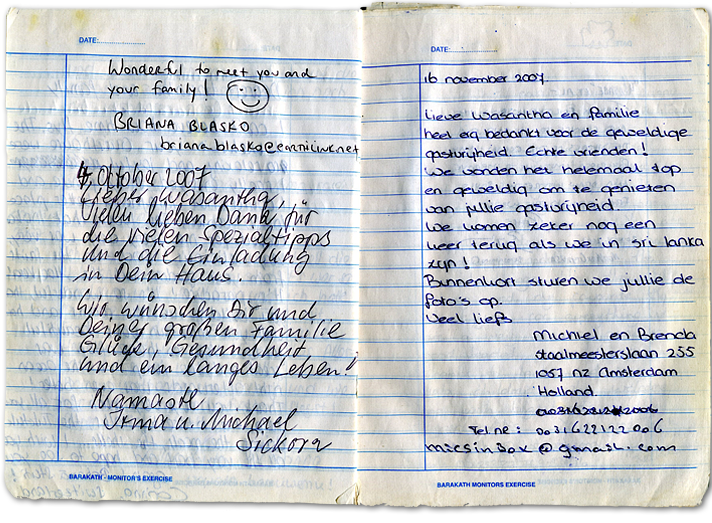 DATE:
Wonderful to meet you and
your family!
BRIANA BLASKO
briana.blasko@earthlink.net
4. Oktober 2007
Lieber Wasantha,
Vielen lieben Dank für
die vielen Spezialtipps
und die Einladung
in Dein Haus.
Wir wünschen Dir und
Deiner großen Familie
Glück, Gesundheit
und ein langes Leben!
Namaste
Irma u. Michael
Sickora
BARAKATH - MONITOR'S EXERCISE
DATE:
16 november 2007.
Lieve Wasantha en familie
heel erg bedankt voor de geweldige
gastvrijheid. Echte vrienden!
We vonden het helemaal top
en geweldig om te genieten
van jullie gastvrijheid
We komen zeker nog een
keer terug als we in sri lanka
zijn!
Binnenkort sturen we jullie de
foto's op.
Veel liefs
Michiel en Brenda
Staalmeesterslaan 255
1057 nz Amsterdam
Holland.
Tel nr: 0031622122006
micsinbox@gmail.com
BARAKATH MONITORS EXERCISE